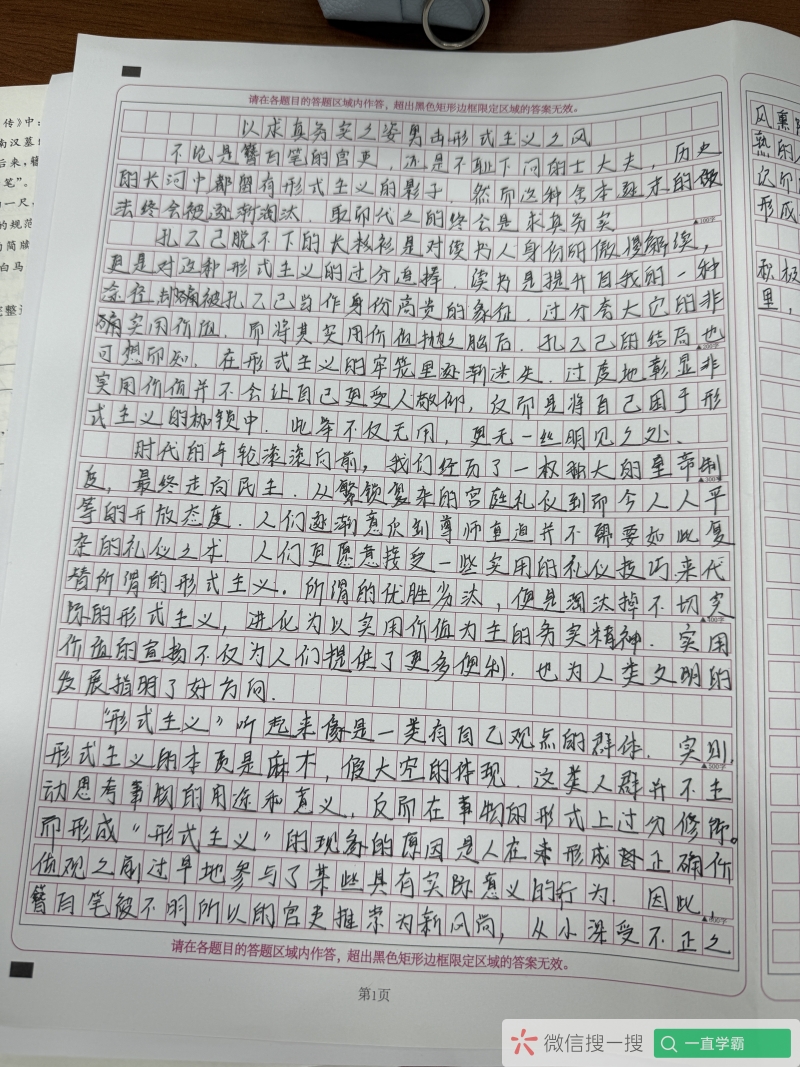 传》中:
南汉墓
后来,簪
笔”。
一尺,
的规范
的简牍
白马
完整
请在各题目的答题区域内作答,超出黑色矩形边框限定区域的答案无效。
以求真务实之姿勇击形式主义之风
不论是簪白笔的官吏,还是不耻下问的士大夫,历史
的长河中都留有形式主义的影子 然而这种舍本逐末的做
法终会被逐渐淘汰.取而代之的终会是求真务实
▲100字
孔乙己脱不下的长衫是对读书人身份的傲慢解读,
更是对这种形式主义的过分追捧.读书是提升自我的一种
途径却被孔乙己当作身份高贵的象征.过分夸大它的非
实用价值.而将其实用价值抛之脑后.孔乙己的结局也
▲200字
可想而知.在形式主义的牢笼里逐渐迷失.过度地彰显非
实用价值并不会让自己更受人敬仰,反而是将自己困于形
式主义的枷锁中.此举不仅无用,更无一丝明见之处.
时代的车轮滚滚向前,我们经历了一权独大的皇帝制
▲300字
度,最终走向民主.从繁锁复杂的宫庭礼仪到而今人人平
等的开放态度.人们逐渐意识到尊师重道并不需要如此复
杂的礼仪之术 人们更愿意接受一些实用的礼仪技巧来代
替所谓的形式主义.所谓的优胜劣汰,便是淘汰掉不切实
际的形式主义,进化为以实用价值为主的务实精神.实用
价值的宣扬不仅为人们提供了更多便利.也为人类文明的
发展指明了好方向.
“形式主义”听起来像是一类有自己观点的群体.实则,
▲500字
形式主义的本质是麻木,假大空的体现.这类人群并不主
动思考事物的用途和意义,反而在事物的形式上过分修饰。
而形成“形式主义”的现象的原因是人在未形成正确价
值观之前过早地参与了某些具有实际意义的行为.因此,
▲600字
簪白笔被不明所以的官吏推崇为新风尚,从小深受不正之
请在各题目的答题区域内作答,超出黑色矩形边框限定区域的答案无效。
第1页
风熏陶
熟的人
次而
形成
积极
里,
微信搜一搜
一直学霸